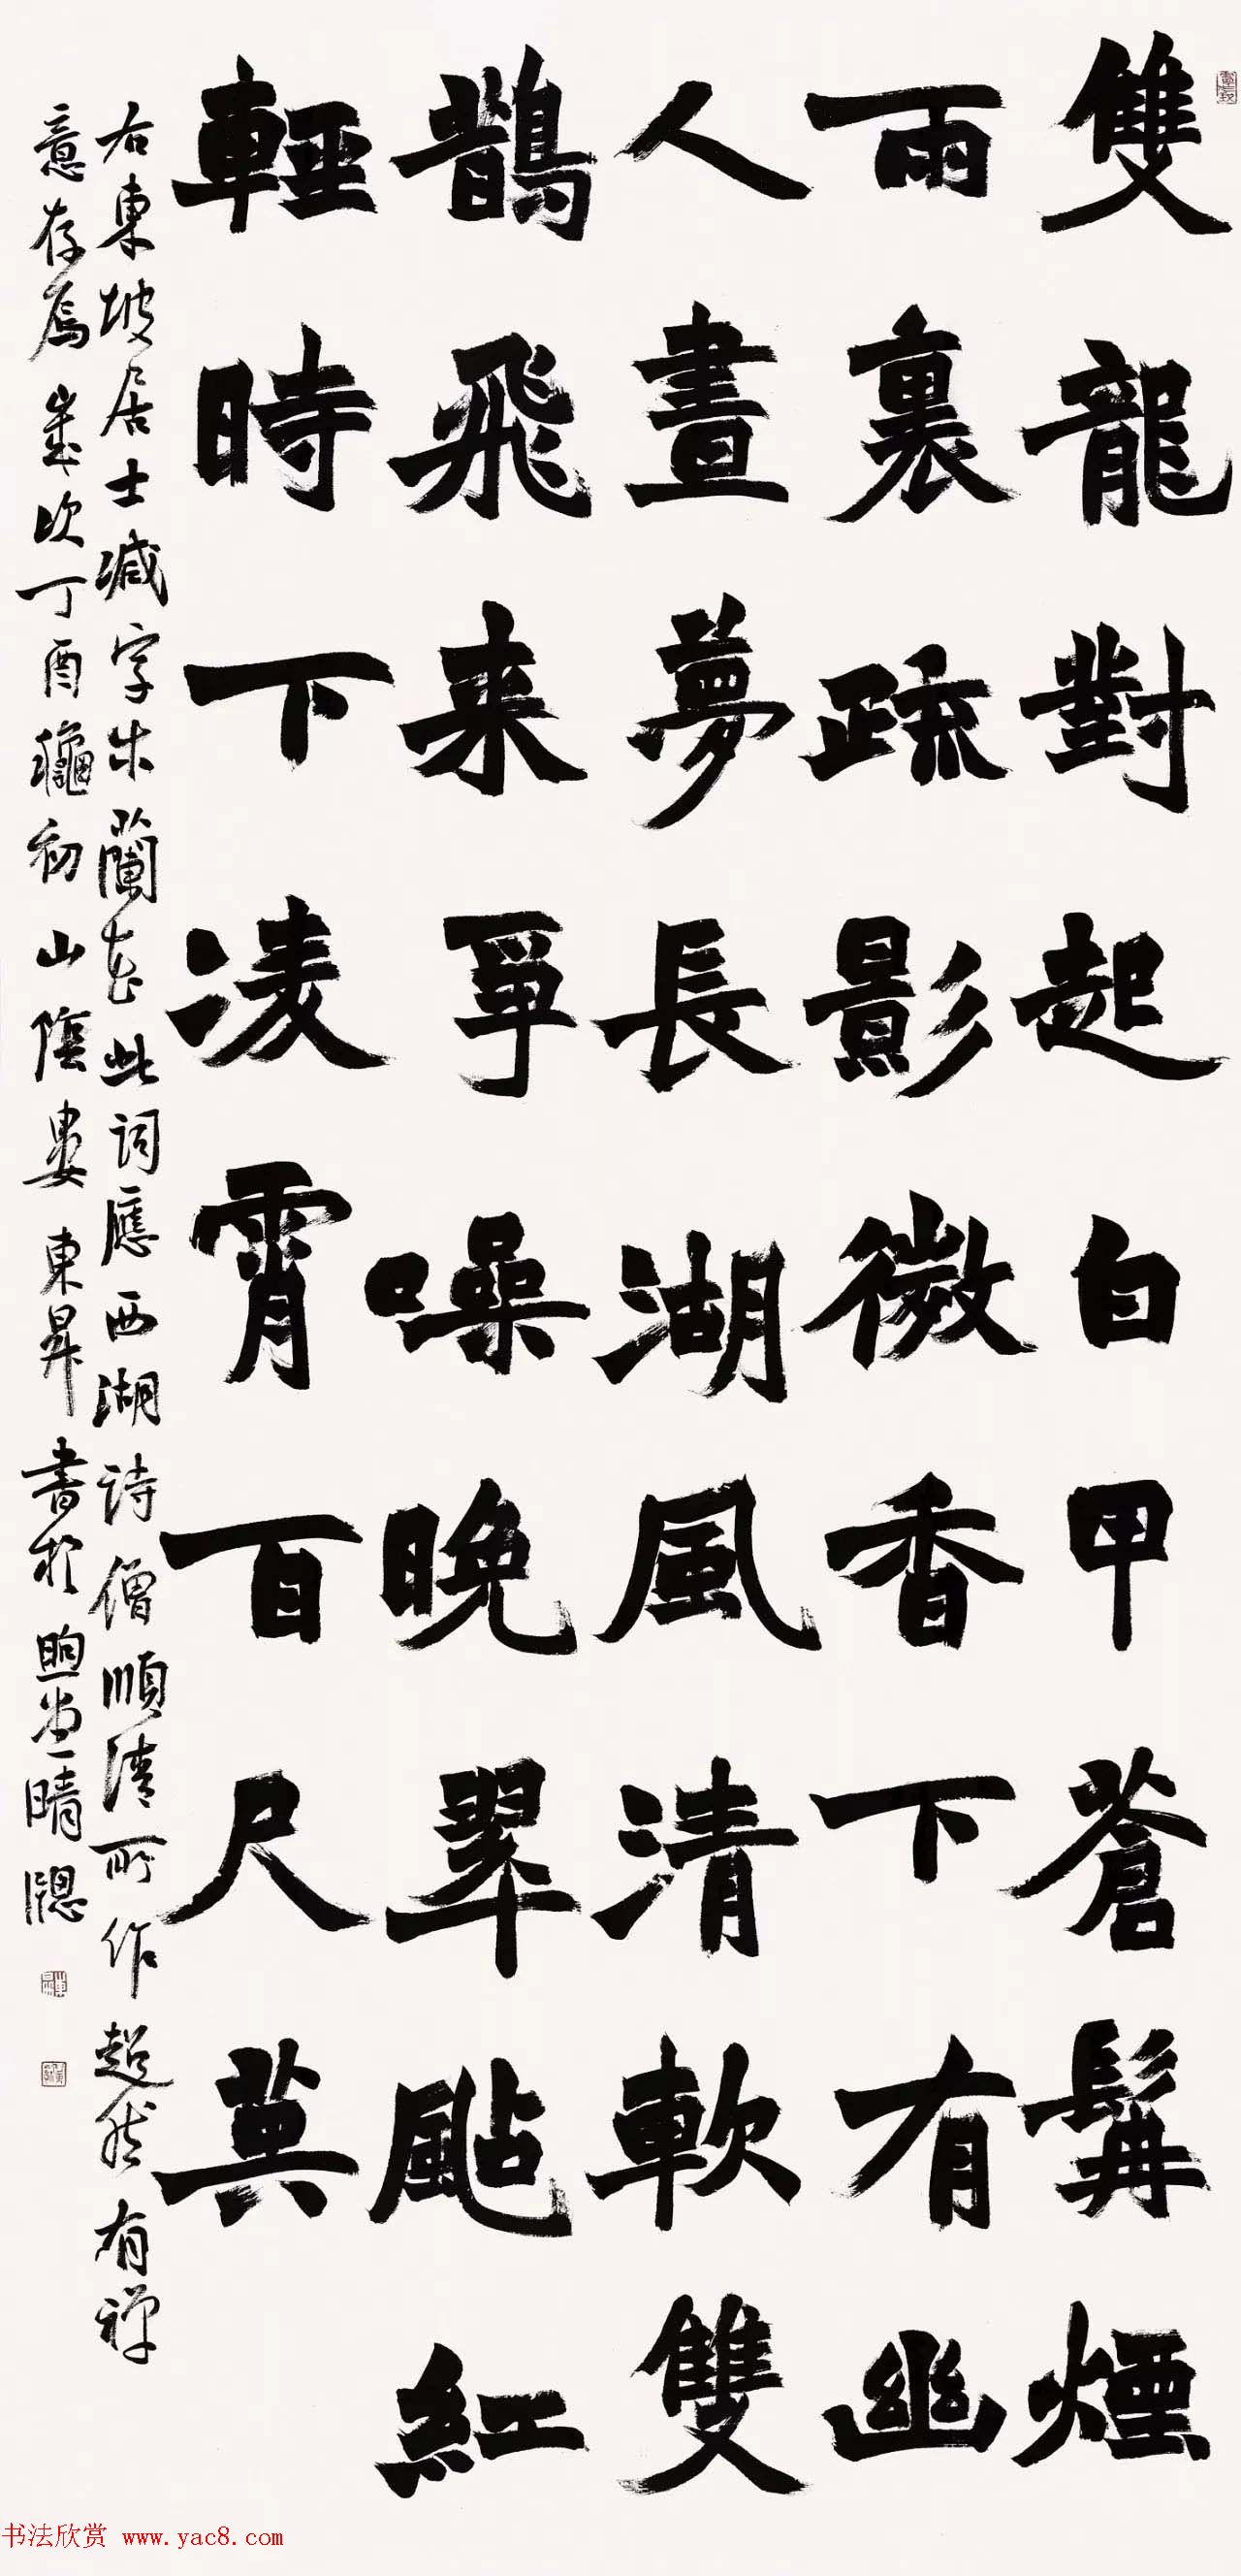 雙龍對起白甲蒼髯煙
雨裏疏影微香下有幽
人晝夢長湖風清軟雙
鵲飛来爭噪晚翠颭紅
輕時下凌霄百尺英
右東坡居士減字木蘭花此詞應西湖詩僧順清所作超然有禪
意存焉歲次丁酉龝初山陰婁東昇書於晴牕
书法欣赏 www.yac8.com